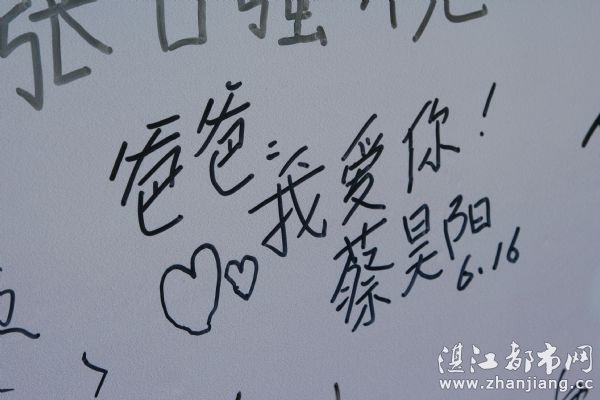 爸爸:我爱你!
蔡昊阳
6.16
湛江都市网
www.zhanjiang.cc